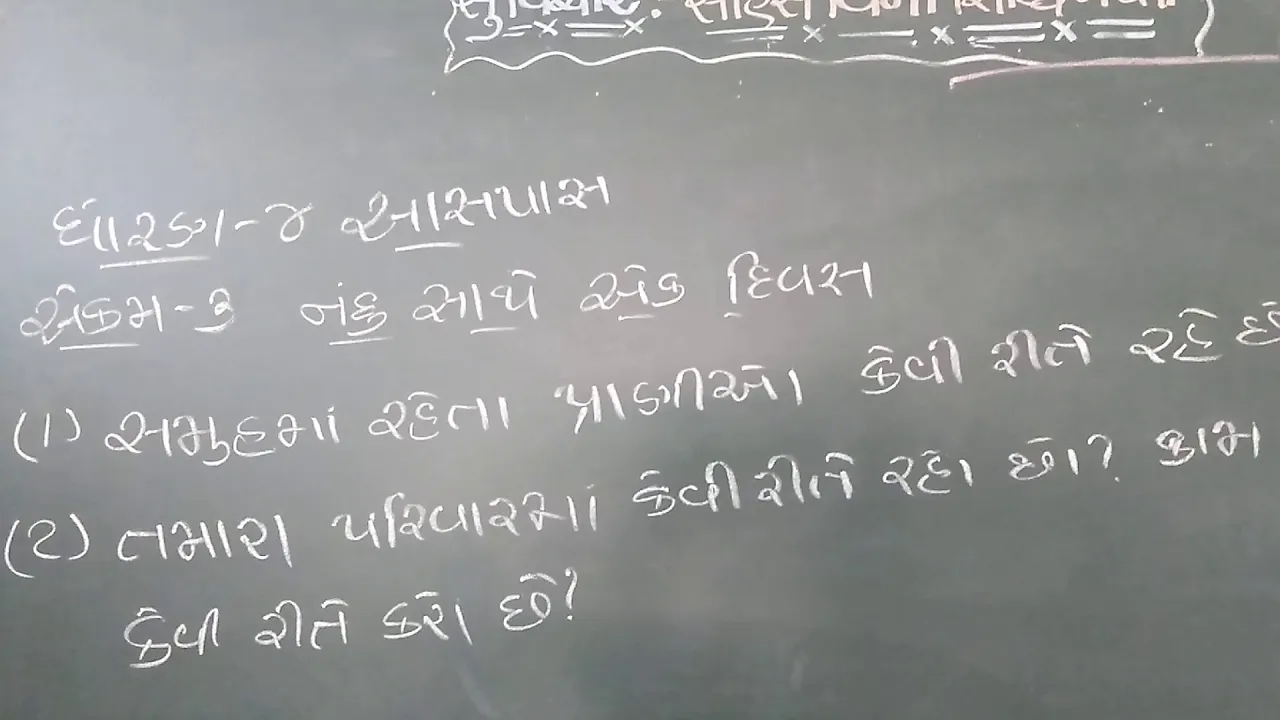 સુવિચાર : સાહસ વિના સિદ્ધિ નથી.
ધોરણ-૪ આસપાસ
એકમ-૩ નંદુ સાથે એક દિવસ
(૧) સમુહમાં રહેતા પ્રાણીઓ કેવી રીતે રહે છે
(૨) તમારા પરિવારમાં કેવી રીતે રહો છો? કામ
કેવી રીતે કરો છો?